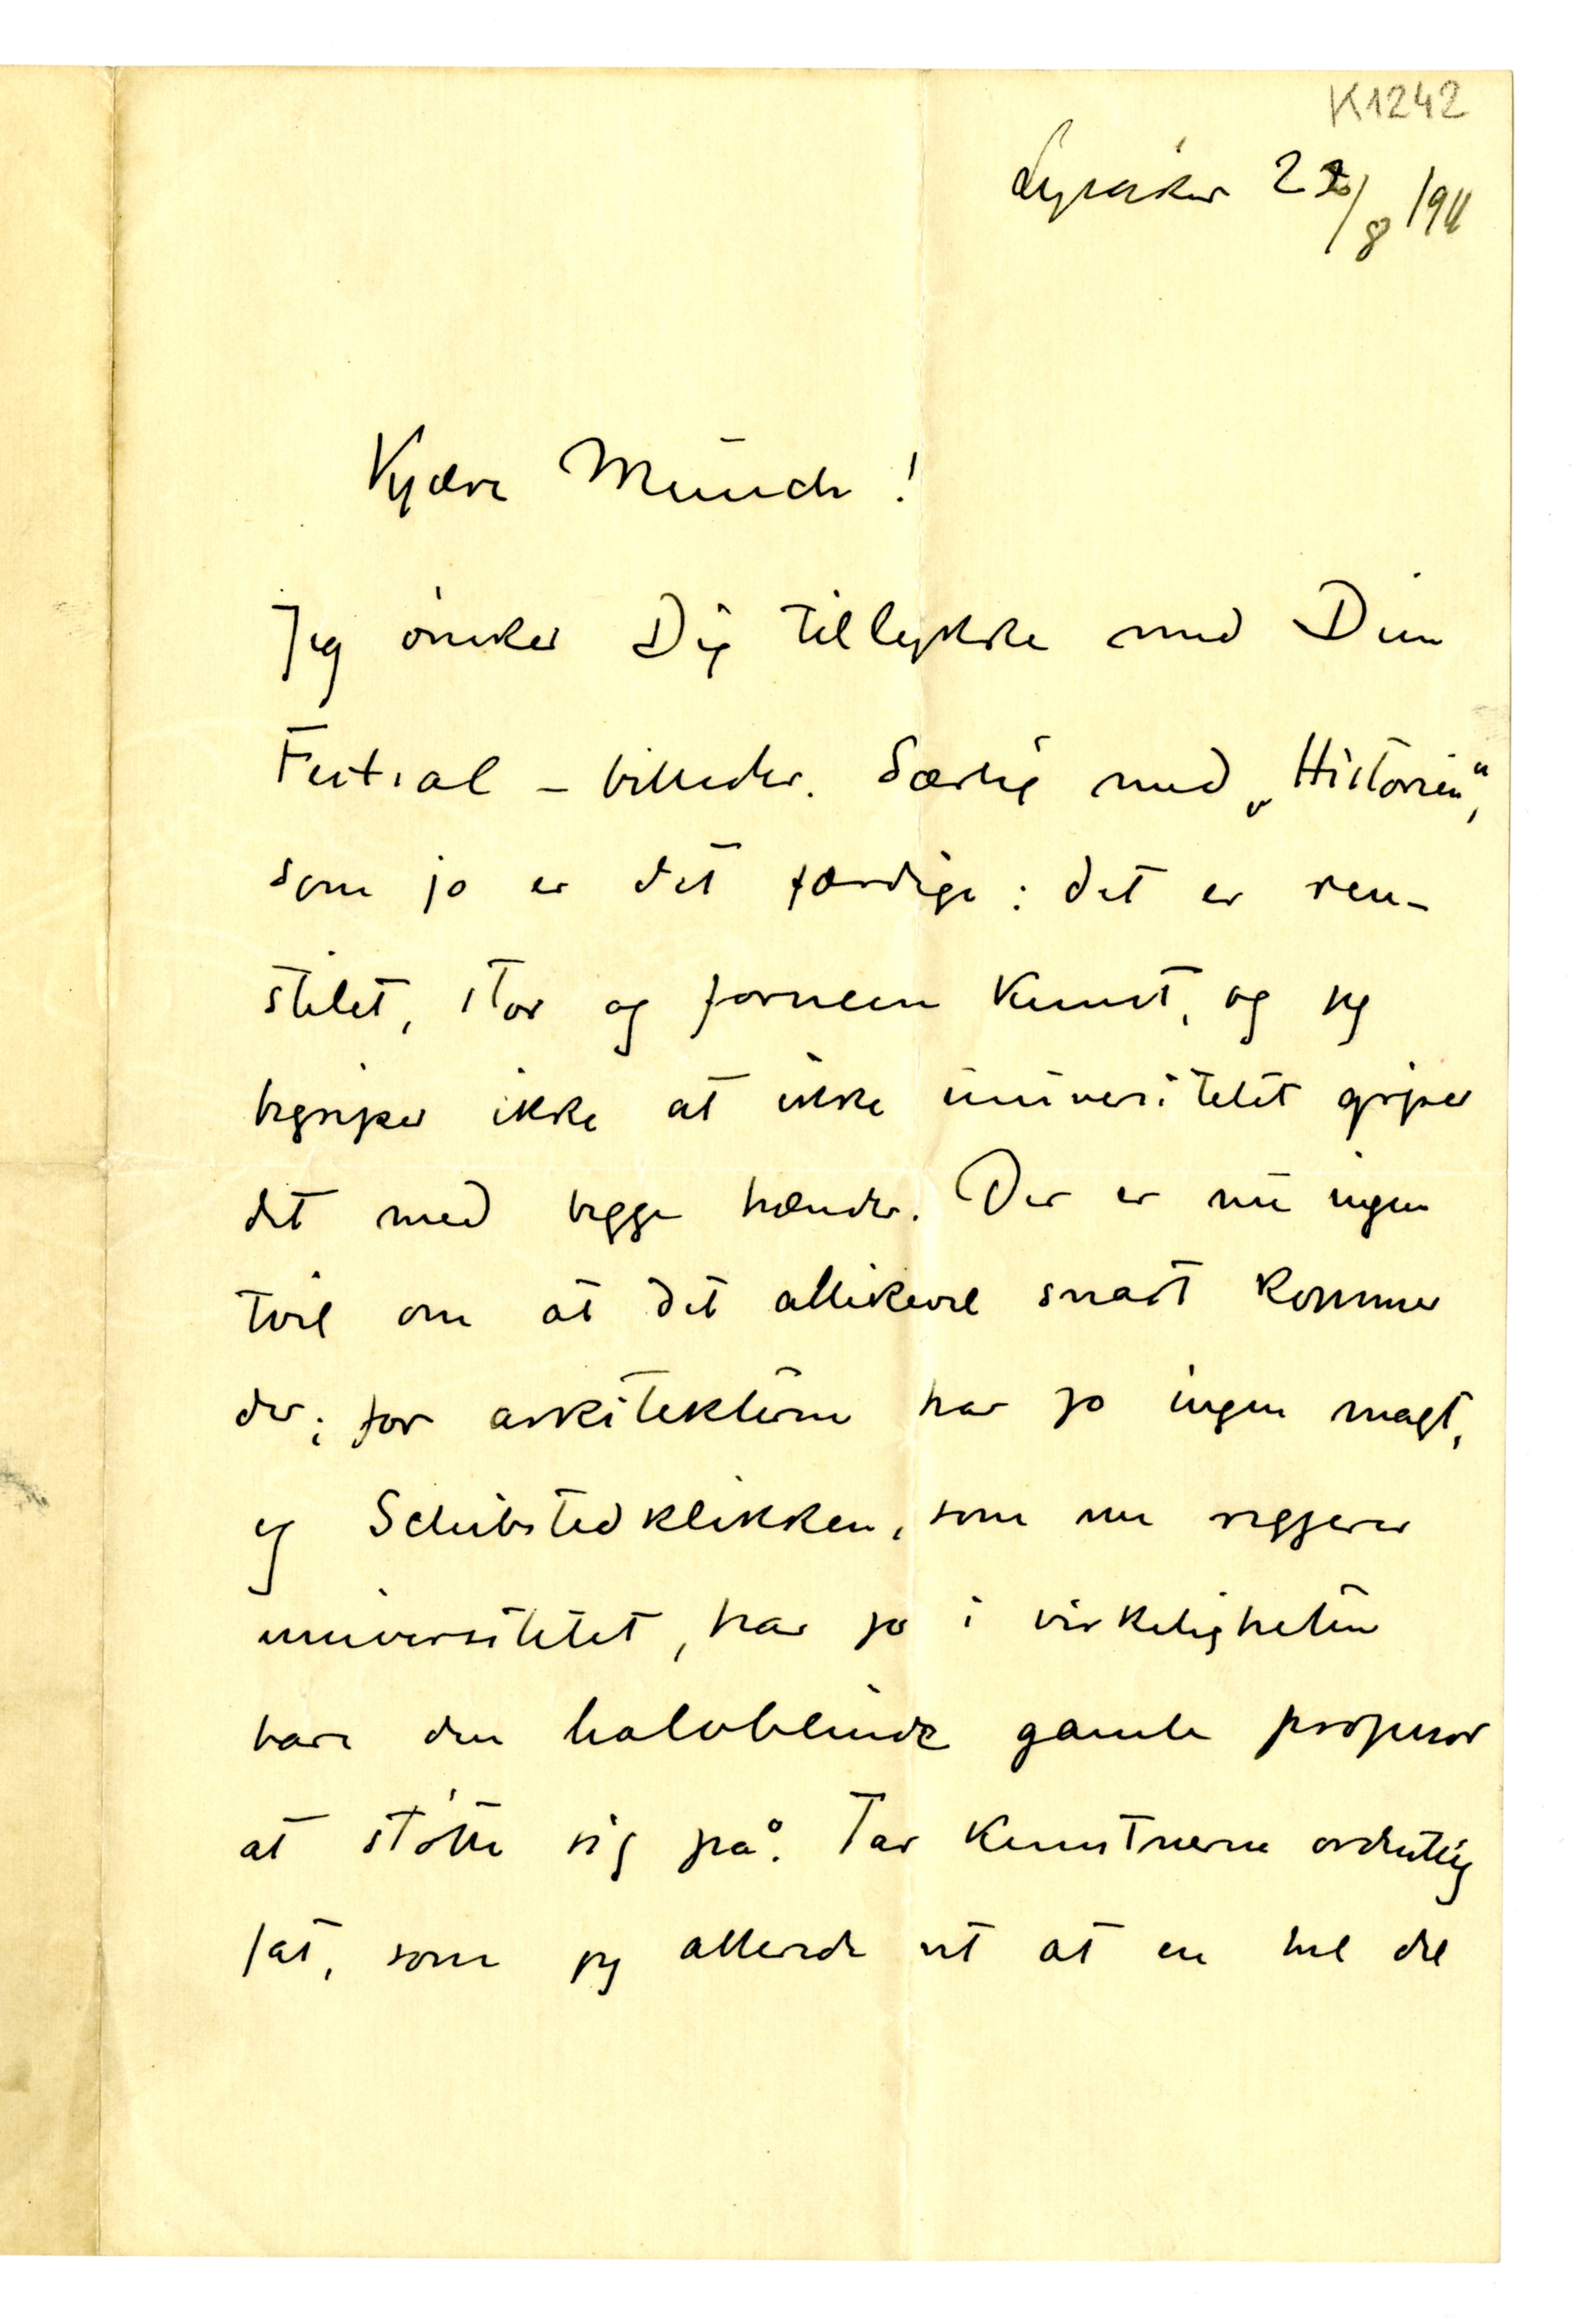 K1242
Lysaker 22/8 1911
Kjære Munch!
Jeg ønsker Dig tillykke med Dine
Festsal-billeder. Særlig med „Historien“,
som jo er det færdige: det er ren-
stilet, stor og fornem kunst, og jeg
begriper ikke at ikke universitetet griper
det med begge hænder. Der er nu ingen
tvil om at det allikevel snart kommer
der; for arkitekterne har jo ingen magt,
og Schibstedklikken, som nu regjerer
universitetet, har jo i virkeligheten
bare den halvblinde gamle professor
at støtte sig på. Tar kunstnerne ordentlig
fat, som jeg allerede vet at en hel del